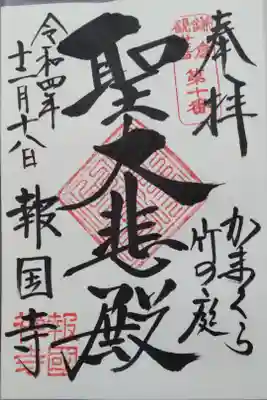 奉拝
鎌倉
観音
第十番
かまくら
竹の庭
聖大悲殿
令和四年
十二月十八日
報国寺
報國
寺